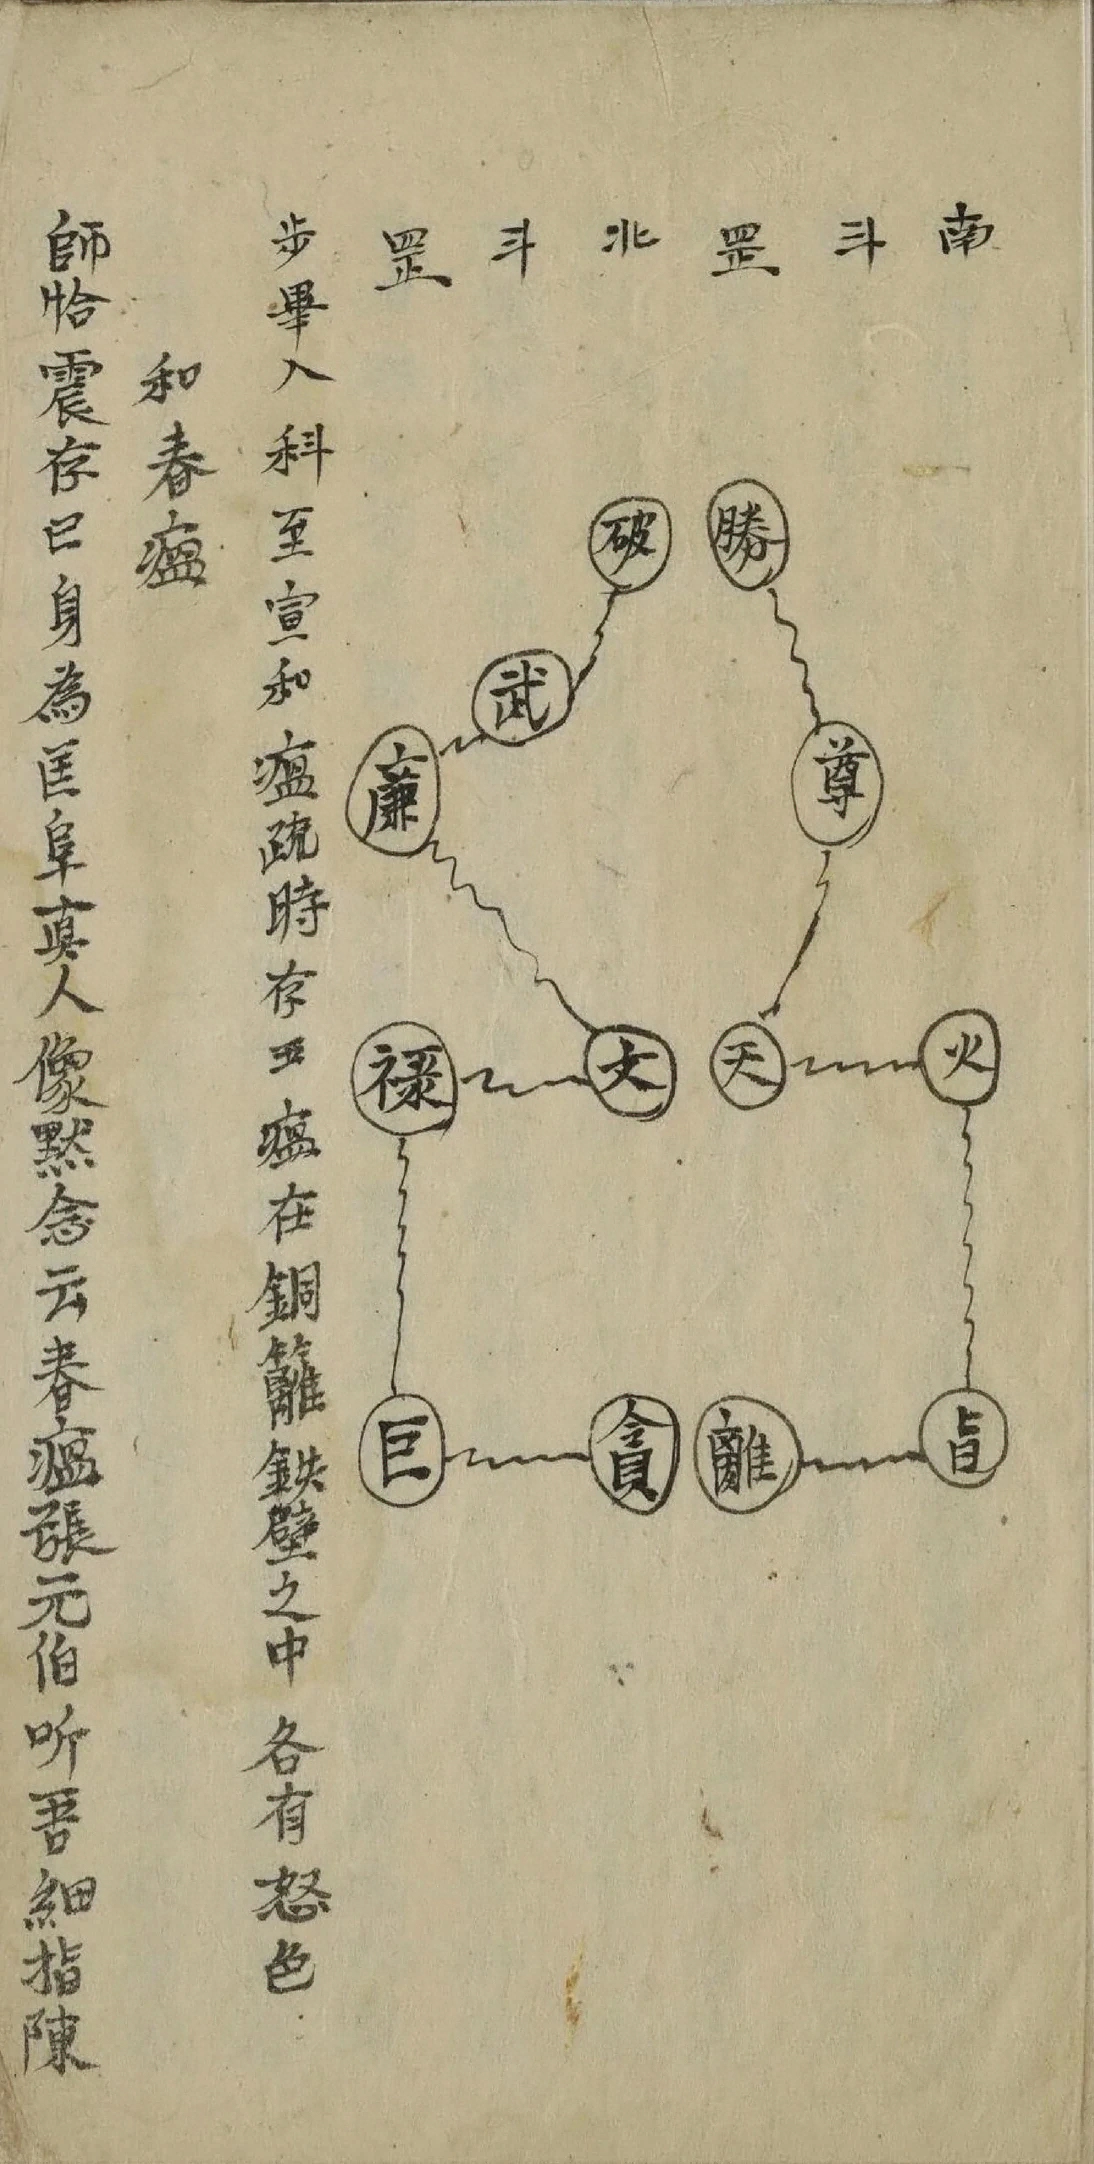 南斗罡北斗罡
勝
尊
天
火
㫖
離
破
武
廉
文
禄
巨
貪
步畢入科至宣和瘟疏時存五瘟在銅籬鉄壁之中各有怒色
和春瘟
師恰震存已身為匡阜真人像黙念云春瘟張元伯听吾細指陳